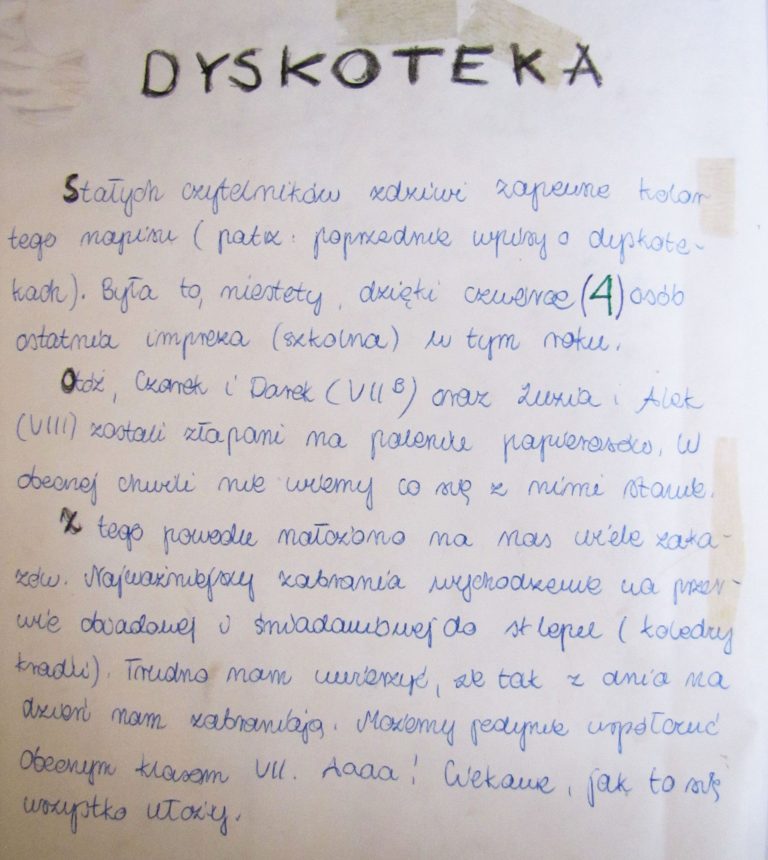 DYSKOTEKA
Stałych czytelników zdziwi zapewne kolor
tego napisu (patrz: poprzednie wpisy o dyskote-
kach). Była to, niestety, dzięki czwórce (4) osób
ostatnia impreza (szkolna) w tym roku.
Otóż, Czarek i Darek (VII B) oraz Luzia i Alek
(VIII) zostali złapani na paleniu papierosów. W
obecnej chwili nie wiemy co się z nimi stanie.
Z tego powodu nałożono na nas wiele zaka-
zów. Najważniejszy zabrania wychodzenie na przer-
wie obiadowej i śniadaniowej do sklepu (
kradli). Trudno nam uwierzyć, że tak z dnia na
dzień nam zabraniają. Możemy jedynie współczuć
obecnym klasom VII. Aaaa! Ciekawe, jak to się
wszystko ułoży.